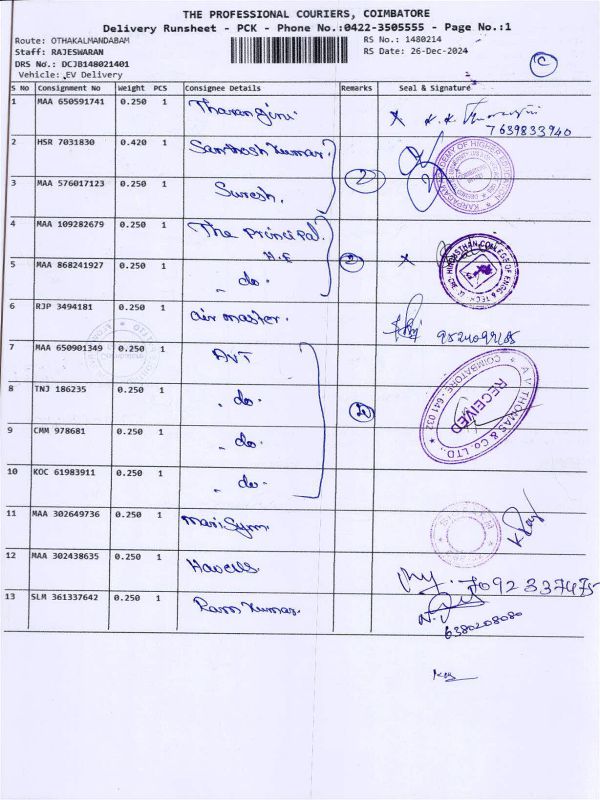 THE PROFESSIONAL COURIERS, COIMBATORE
Delivery Runsheet - PCK - Phone No.:0422-3505555 - Page No.:1
Route: OTHAKALMANDABAM
RS No.: 1480214
Staff: RAJESWARAN
RS Date: 26-Dec-2024
DRS No.: DCJB148021401
Vehicle: EV Delivery
S No Consignment No Weight PCS Consignee Details Remarks Seal & Signature
1 MAA 650591741 0.250 1 Tharangini
7639833940
2 HSR 7031830 0.420 1 Santhosh Kumar.
2
3 MAA 576017123 0.250 1 Suresh.
4 MAA 109282679 0.250 1 The principal.
H.E
2
HINDUSTHAN COLLEGE OF ENGG & TECH
5 MAA 868241927 0.250 1 " do.
6 RJP 3494181 0.250 1 air master.
7 MAA 650901349 0.250 1 AVT
A.V. THOMAS & Co. LTD.,
COIMBATORE - 641 032
RECEIVED
8 TNJ 186235 0.250 1 " do.
4
9 CMM 978681 0.250 1 " do.
10 KOC 61983911 0.250 1 " do.
11 MAA 302649736 0.250 1
12 MAA 302438635 0.250 1 Havells.
7092337475
13 SLM 361337642 0.250 1 Ram Kumar.
6380208080